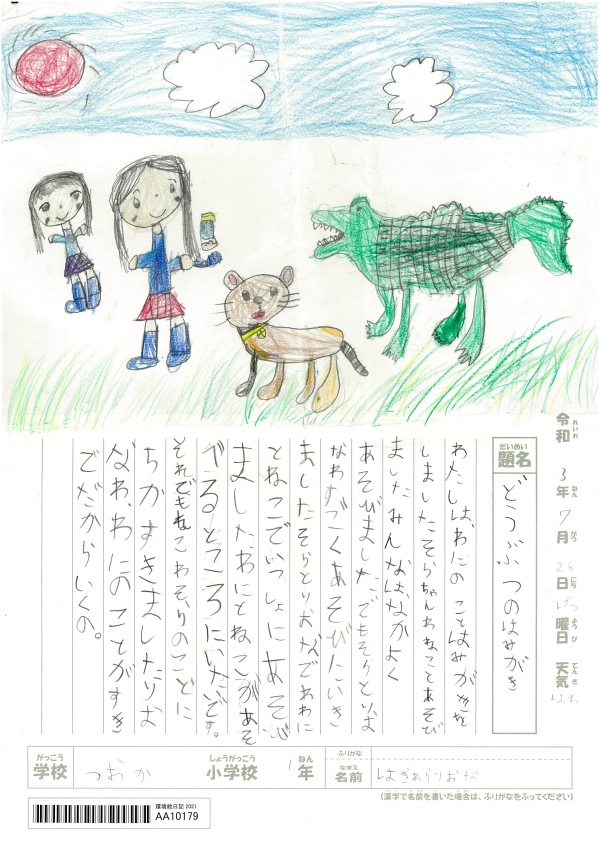 令和3年7月26日げつ曜日 天気はれ
れいわ ねん がつ にち ようび てんき
だいめい
題名 どうぶつのはみがき
わたしは、わにのことはみがきを
しましたそらちゃんわねことあそび
ましたみんなはなかよく
あそびました。でもそらとりお
なわすごくあそびたいき
ましたそらとりおなでわわに
とねこでいっしょにあそび
ましたわにとねこがあそ
でるところにいたいです。
それでもねこわそりのことに
ちかずきましたりお
なわ、わにのことがすき
でだからいくの。
がっこう しょうがっこう ねん ふりがな なまえ
学校 つおか 小学校 1年 名前 はぎわらりおな
(漢字で名前を書いた場合は、ふりがなをふってください)
環境絵日記 2021
AA10179